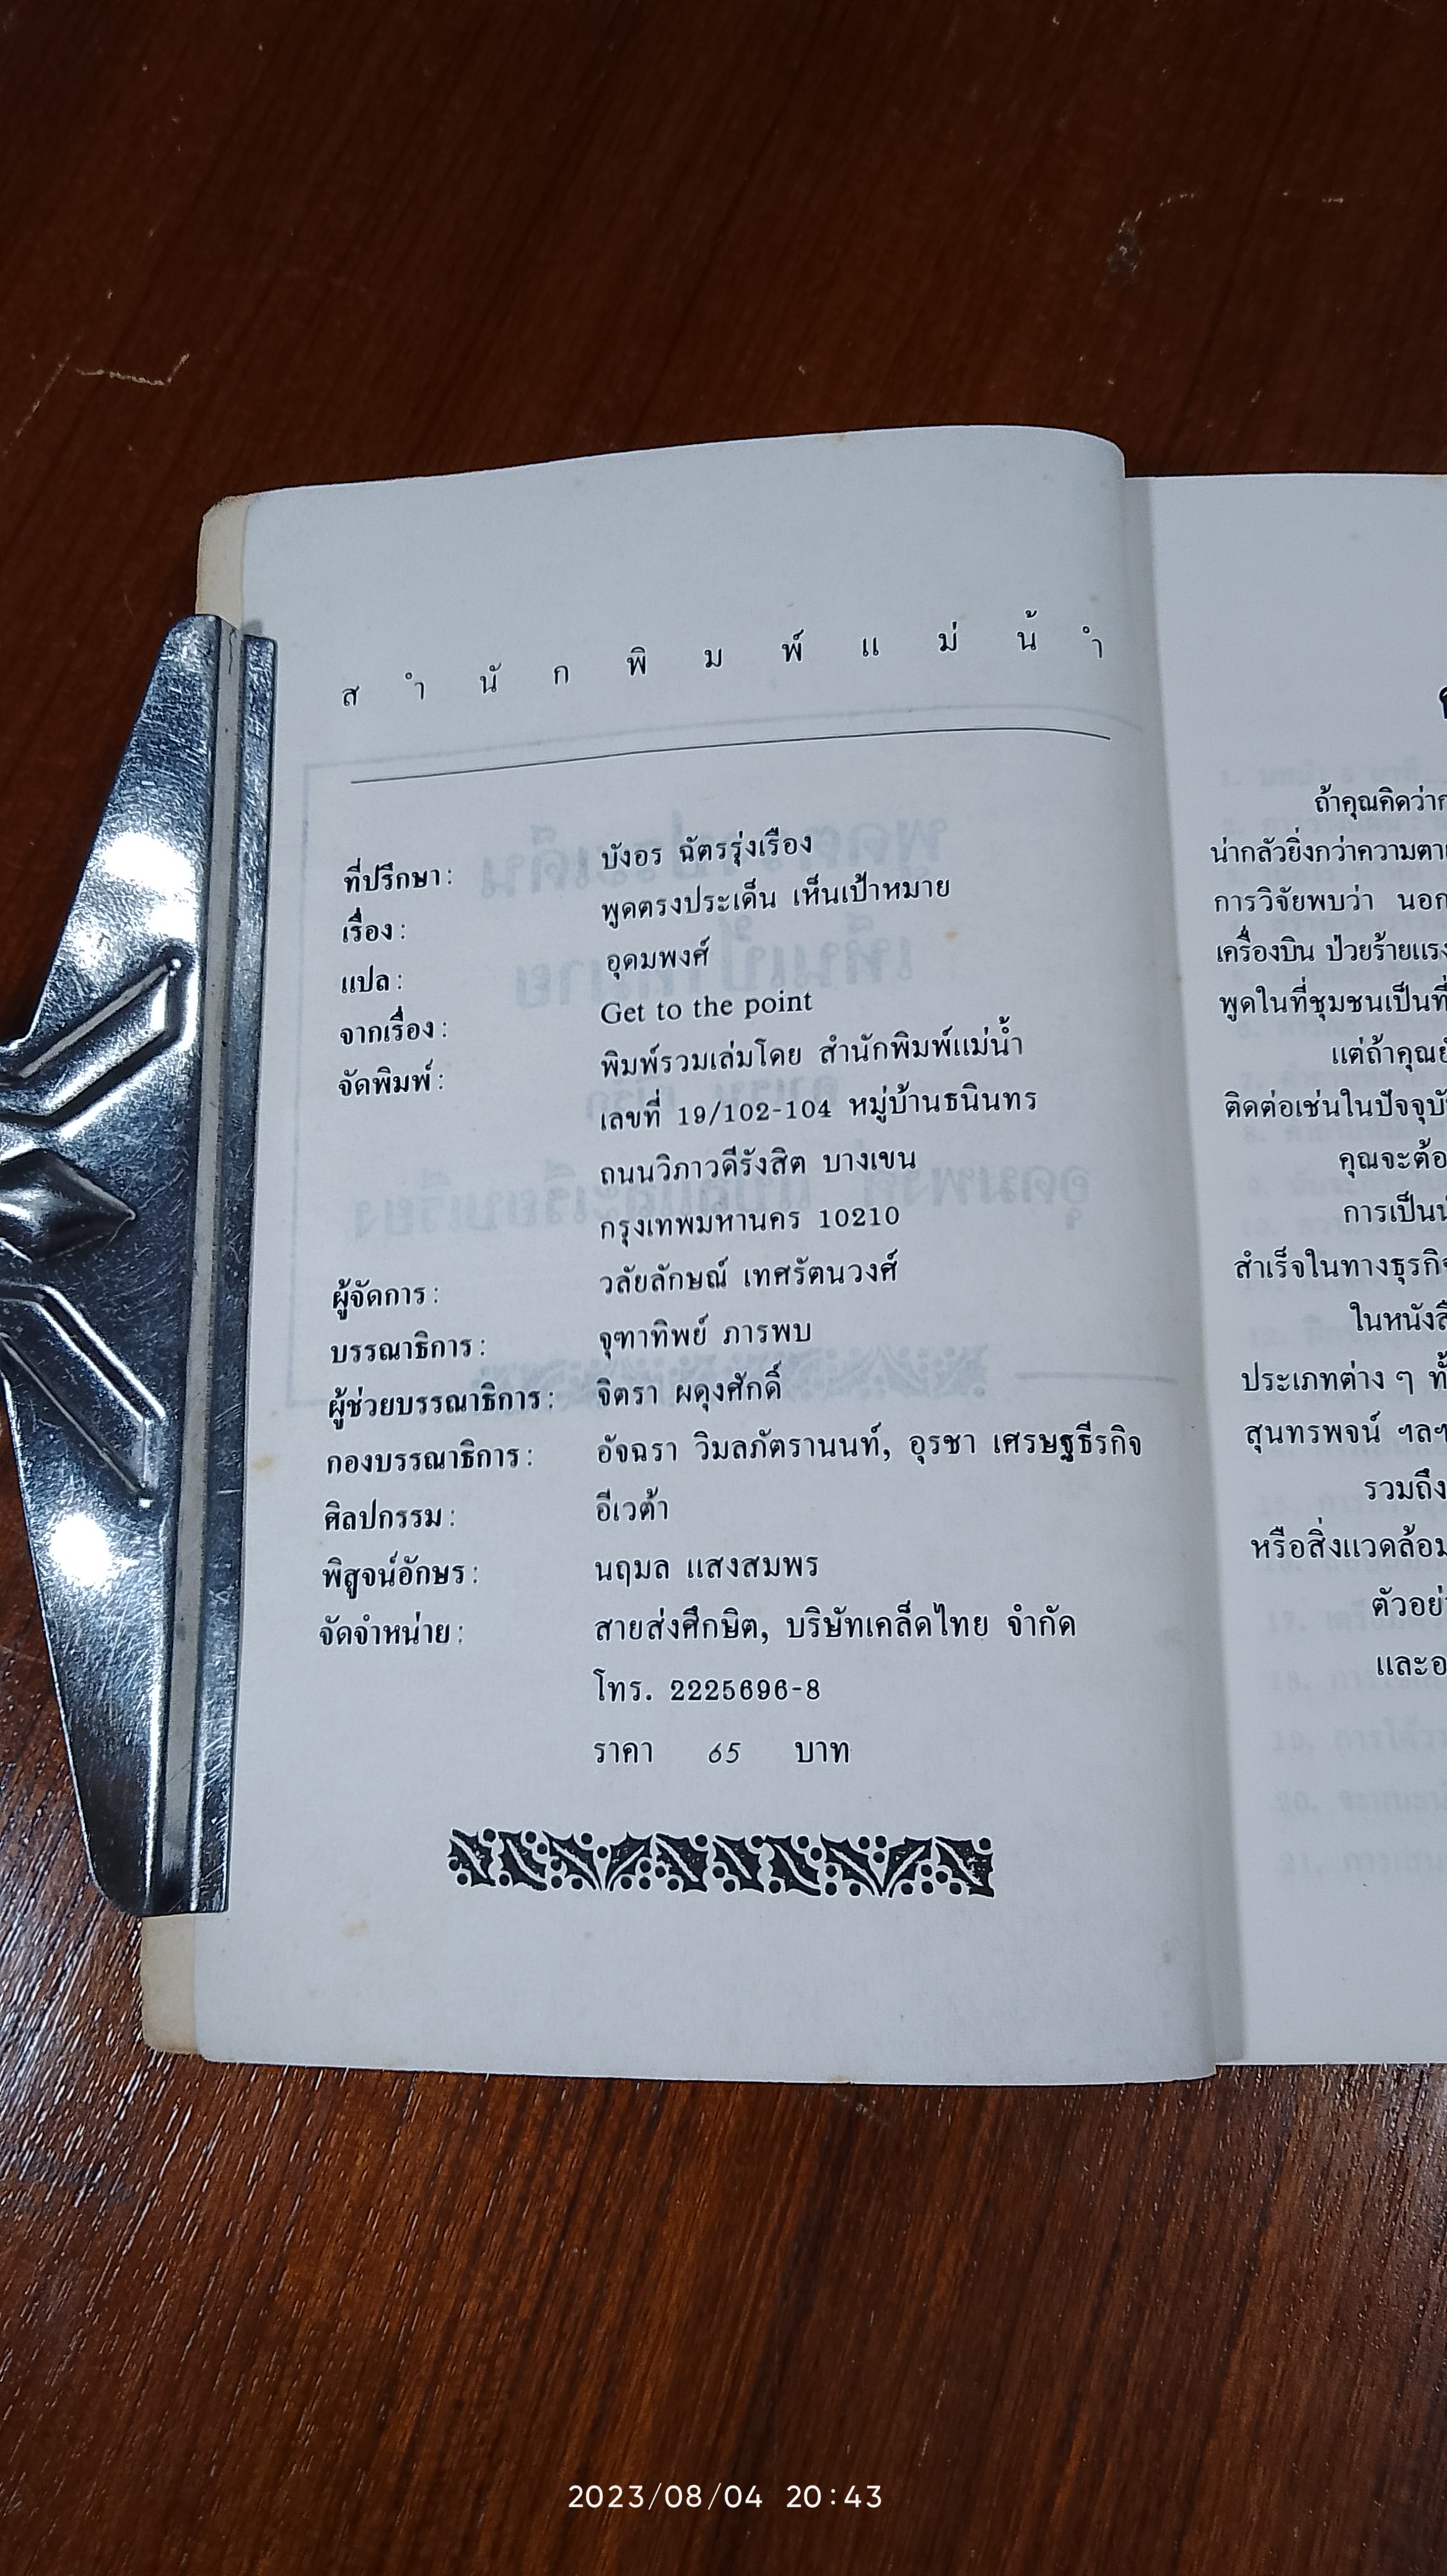 สำนักพิมพ์แม่น้ำ
ที่ปรึกษา: บังอร ฉัตรรุ่งเรือง
เรื่อง: พูดตรงประเด็น เห็นเป้าหมาย
แปล: อุดมพงศ์
จากเรื่อง: Get to the point
จัดพิมพ์: พิมพ์รวมเล่มโดย สำนักพิมพ์แม่น้ำ
เลขที่ 19/102-104 หมู่บ้านธนินทร
ถนนวิภาวดีรังสิต บางเขน
กรุงเทพมหานคร 10210
ผู้จัดการ: วลัยลักษณ์ เทศรัตนวงศ์
บรรณาธิการ: จุฑาทิพย์ ภารพบ
ผู้ช่วยบรรณาธิการ: จิตรา ผดุงศักดิ์
กองบรรณาธิการ: อัจฉรา วิมลภัตรานนท์, อุรชา เศรษฐธีรกิจ
ศิลปกรรม: อีเวต้า
พิสูจน์อักษร: นฤมล แสงสมพร
จัดจำหน่าย: สายส่งศึกษิต, บริษัทเคล็ดไทย จำกัด
โทร. 2225696-8
ราคา 65 บาท
ถ้าคุณคิดว่า
น่ากลัวยิ่งกว่าความตา
การวิจัยพบว่า นอก
เครื่องบิน ป่วยร้ายแรง
พูดในที่ชุมชนเป็นที่
แต่ถ้าคุณ
ติดต่อเช่นในปัจจุบั
คุณจะต้อ
การเป็น
สำเร็จในทางธุรกิจ
ในหนังสื
ประเภทต่าง ๆ ทั้
สุนทรพจน์ ฯลฯ
รวมถึง
หรือสิ่งแวดล้อม
ตัวอย่
และอ
2023/08/04 20:43